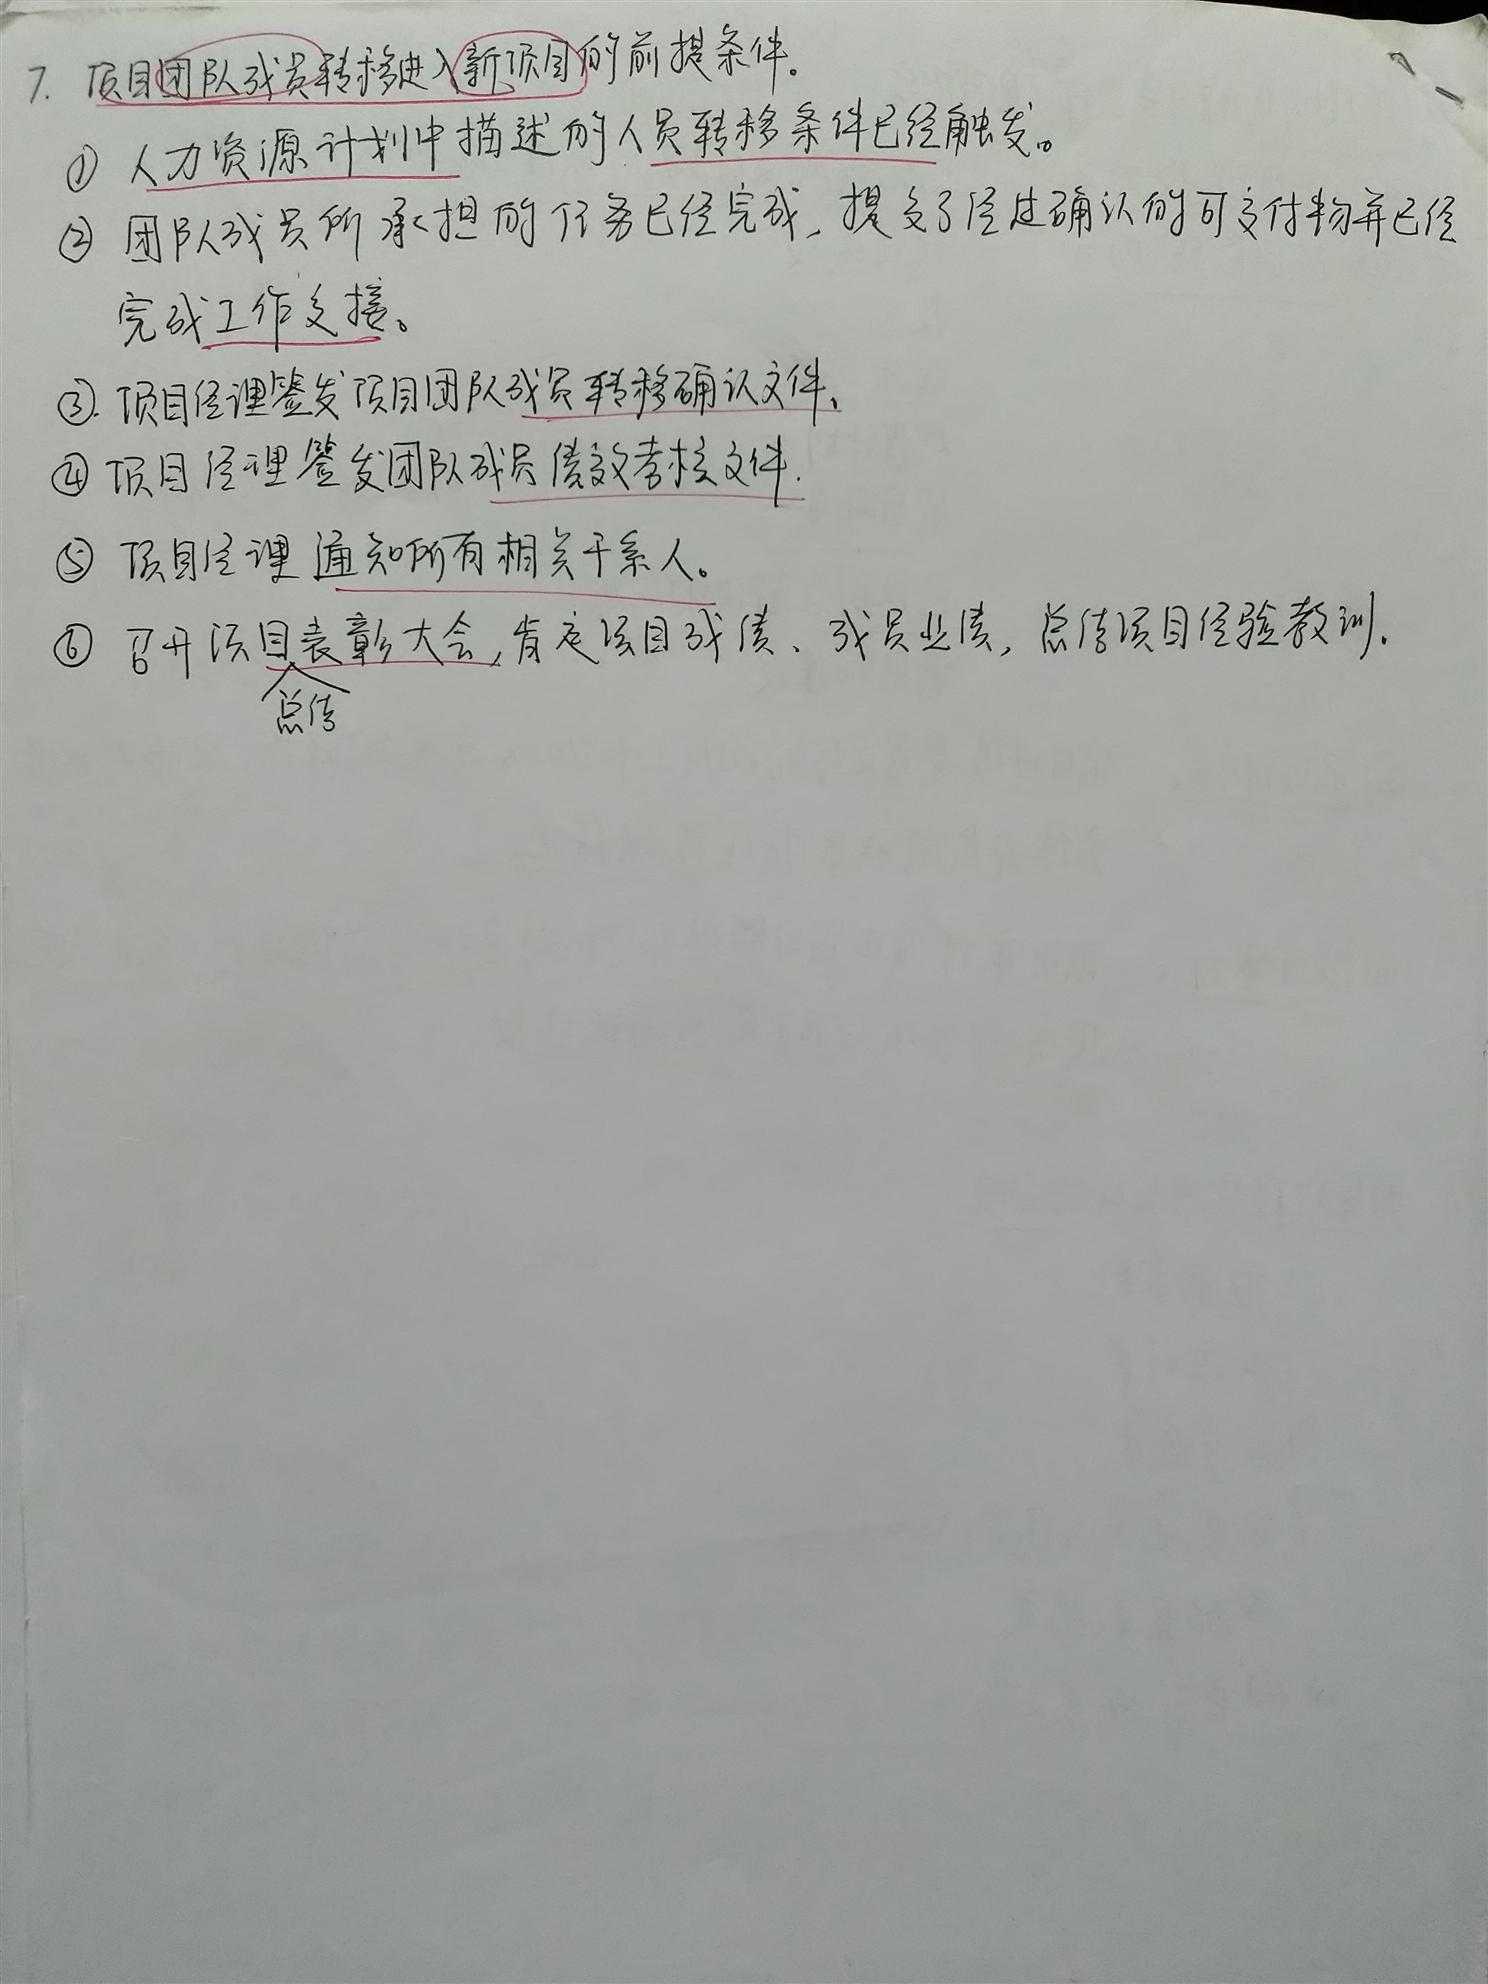 7. 项目团队成员转移进入新项目的前提条件。
① 人力资源计划中描述的人员转移条件已经触发。
② 团队成员所承担的任务已经完成，提交了经过确认的可交付物并已经
完成工作交接。
③. 项目经理签发项目团队成员转移确认文件、
④ 项目经理签发团队成员绩效考核文件.
⑤ 项目经理通知所有相关干系人。
⑥ 召开项目表彰大会，肯定项目成绩、成员业绩，总结项目经验教训.
总结